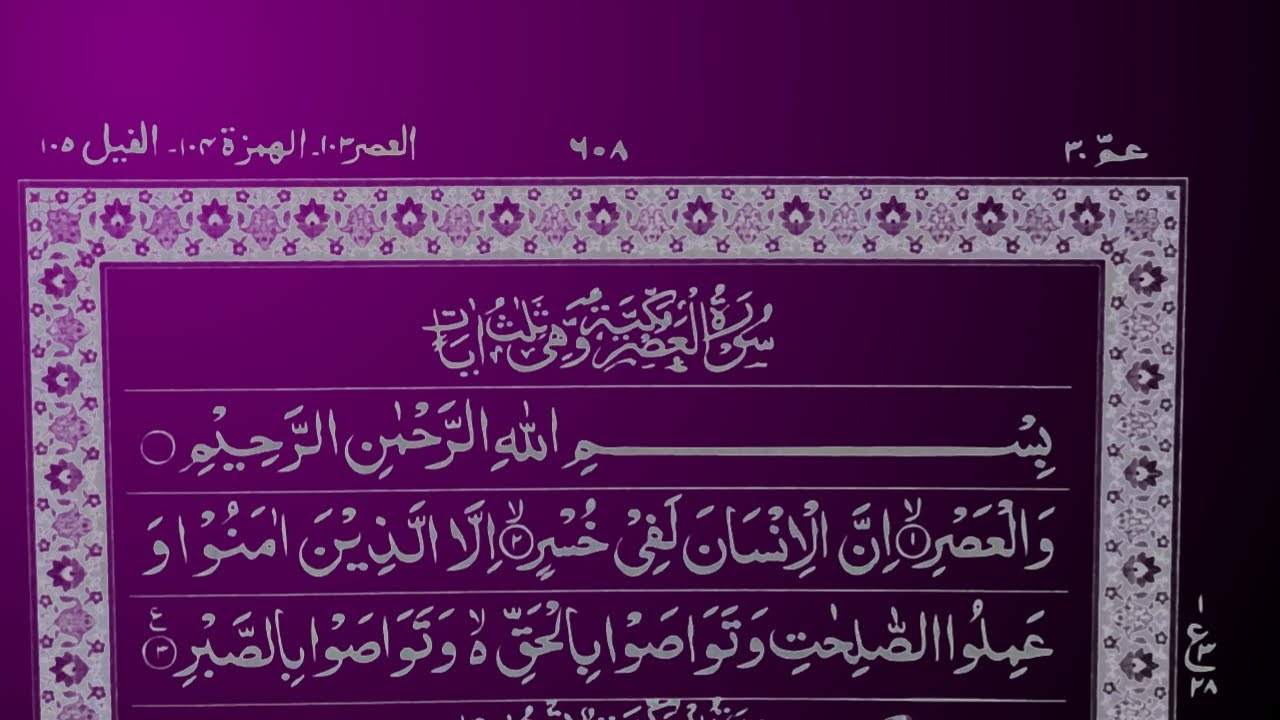 عمّ ٣٠
٦٠٨
العصر ١٠٣۔ الهمزة ١٠٤۔ الفيل ١٠٥
سُوْرَةُ الْعَصْرِ مَكِّيَّةٌ وَّهِىَ ثَلٰثُ اٰيَاتٍ
بِسْمِ اللّٰهِ الرَّحْمٰنِ الرَّحِيْمِ
وَالْعَصْرِ ۙ﴿١﴾ اِنَّ الْاِنْسَانَ لَفِىْ خُسْرٍ ۙ﴿٢﴾ اِلَّا الَّذِيْنَ اٰمَنُوْا وَ
عَمِلُوا الصّٰلِحٰتِ وَتَوَاصَوْا بِالْحَقِّ ۙ وَتَوَاصَوْا بِالصَّبْرِ ﴿٣﴾ ع
١
ع ٣
٢٨